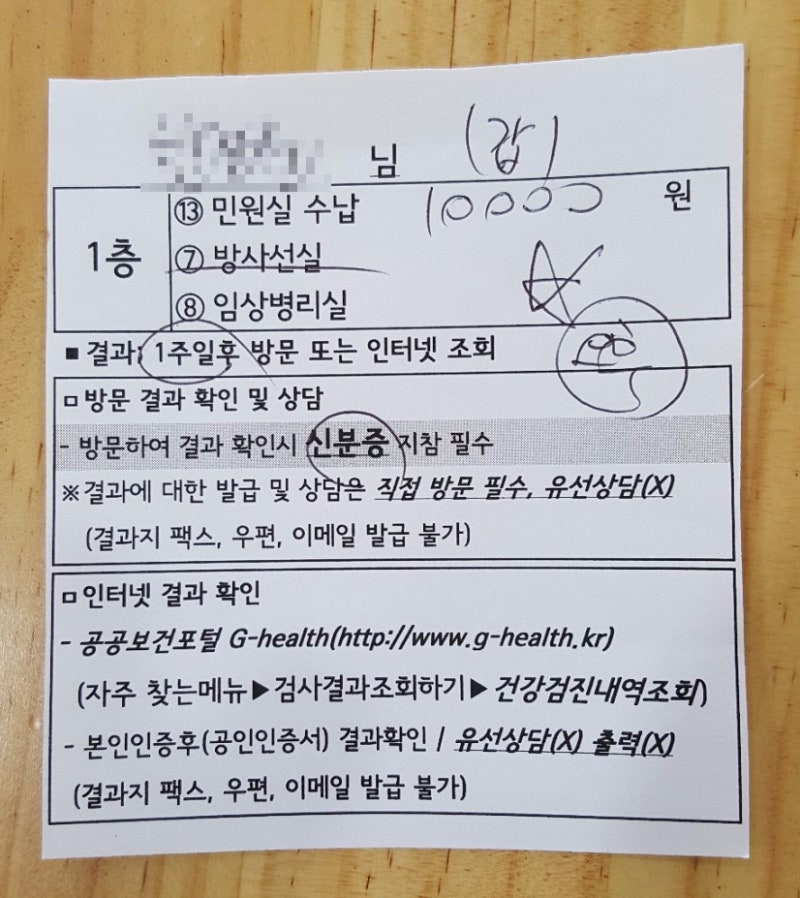 님 (갑)
1층
⑬ 민원실 수납 10000 원
⑦ 방사선실
⑧ 임상병리실
■ 결과: 1주일후 방문 또는 인터넷 조회
ㅁ 방문 결과 확인 및 상담
- 방문하여 결과 확인시 신분증 지참 필수
※ 결과에 대한 발급 및 상담은 직접 방문 필수, 유선상담(X)
(결과지 팩스, 우편, 이메일 발급 불가)
ㅁ 인터넷 결과 확인
- 공공보건포털 G-health(http://www.g-health.kr)
(자주 찾는메뉴▶검사결과조회하기▶ 건강검진내역조회)
- 본인인증후(공인인증서) 결과확인 / 유선상담(X) 출력(X)
(결과지 팩스, 우편, 이메일 발급 불가)